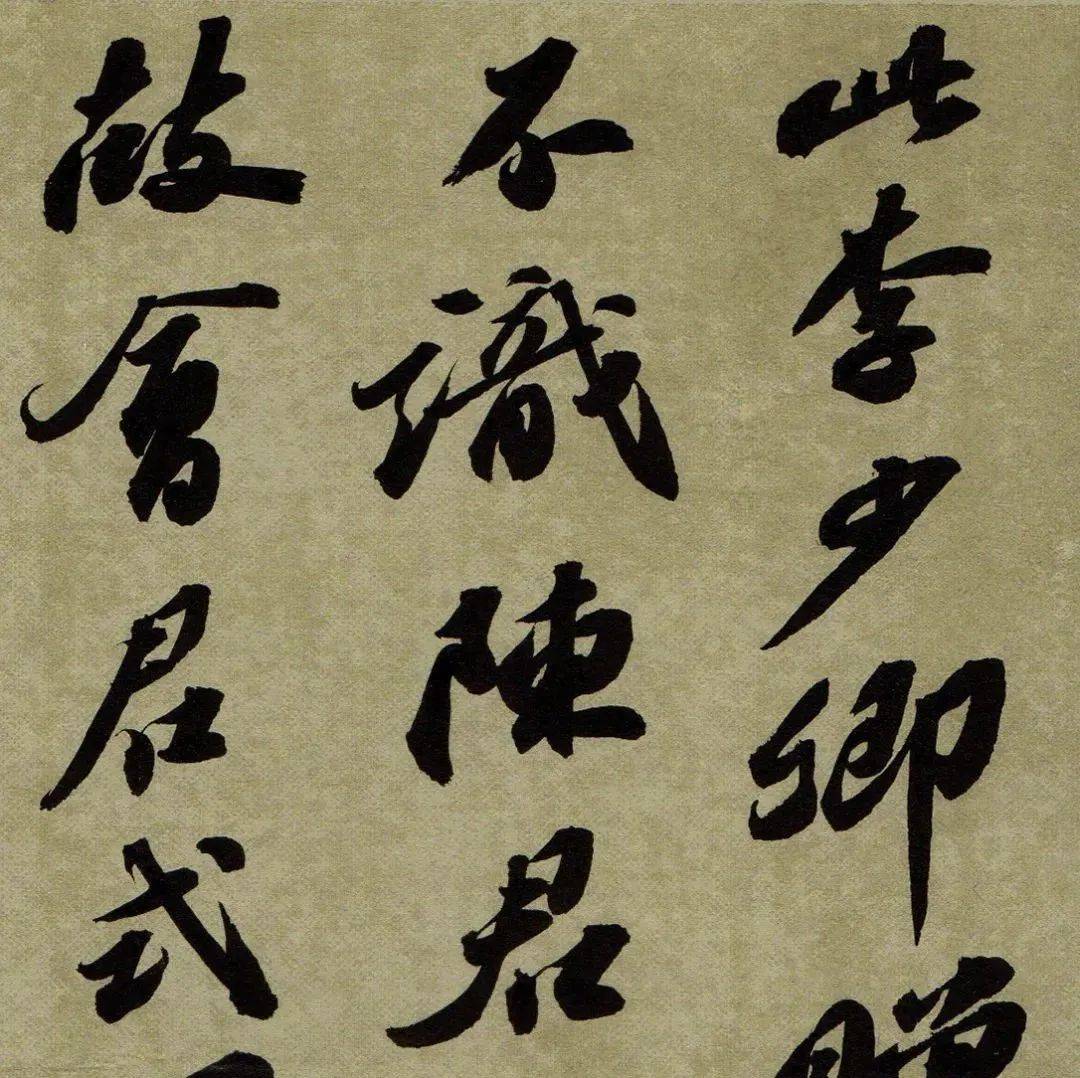 此李少卿贈
不識陳君
故會君式